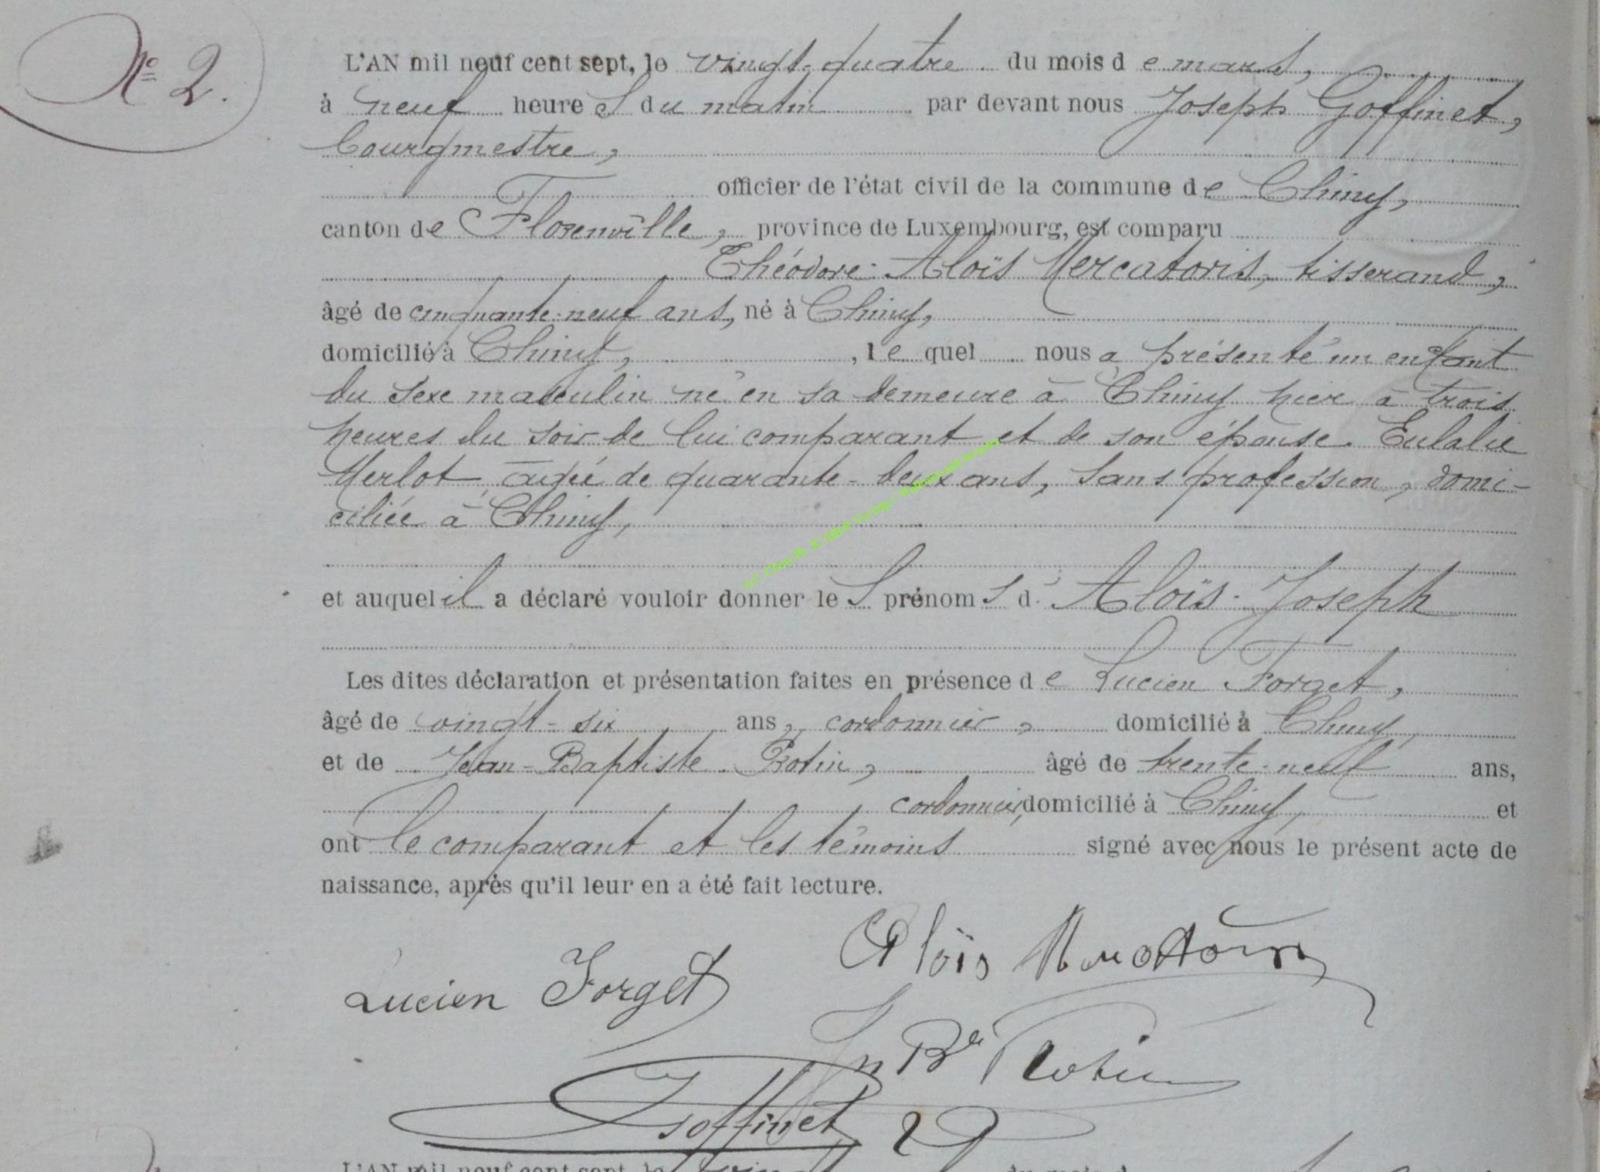 N° 2.
L'AN mil neuf cent sept, le vingt-quatre du mois de mars,
à neuf heures du matin par devant nous Joseph Goffinet,
bourgmestre,
officier de l'état civil de la commune de Chiny,
canton de Florenville, province de Luxembourg, est comparu
Théodore-Aloïs Mercatoris, tisserand,
âgé de cinquante-neuf ans, né à Chiny,
domicilié à Chiny, , lequel nous a présenté un enfant
du sexe masculin né en sa demeure à Chiny hier à trois
heures du soir de lui comparant et de son épouse Eulalie
Merlot, âgée de quarante-deux ans, sans profession, domi-
ciliée à Chiny,
et auquel il a déclaré vouloir donner les prénoms d' Aloïs-Joseph
Les dites déclaration et présentation faites en présence de Lucien Forget,
âgé de vingt-six ans, cordonnier, domicilié à Chiny,
et de Jean-Baptiste Rotin, âgé de trente-neuf ans,
cordonnier, domicilié à Chiny, et
ont le comparant et les témoins signé avec nous le présent acte de
naissance, après qu'il leur en a été fait lecture.
Aloïs Mercatoris
Lucien Forget
Jn Bte Rotin
J Goffinet
L'AN mil neuf cent sept, le vingt du mois d